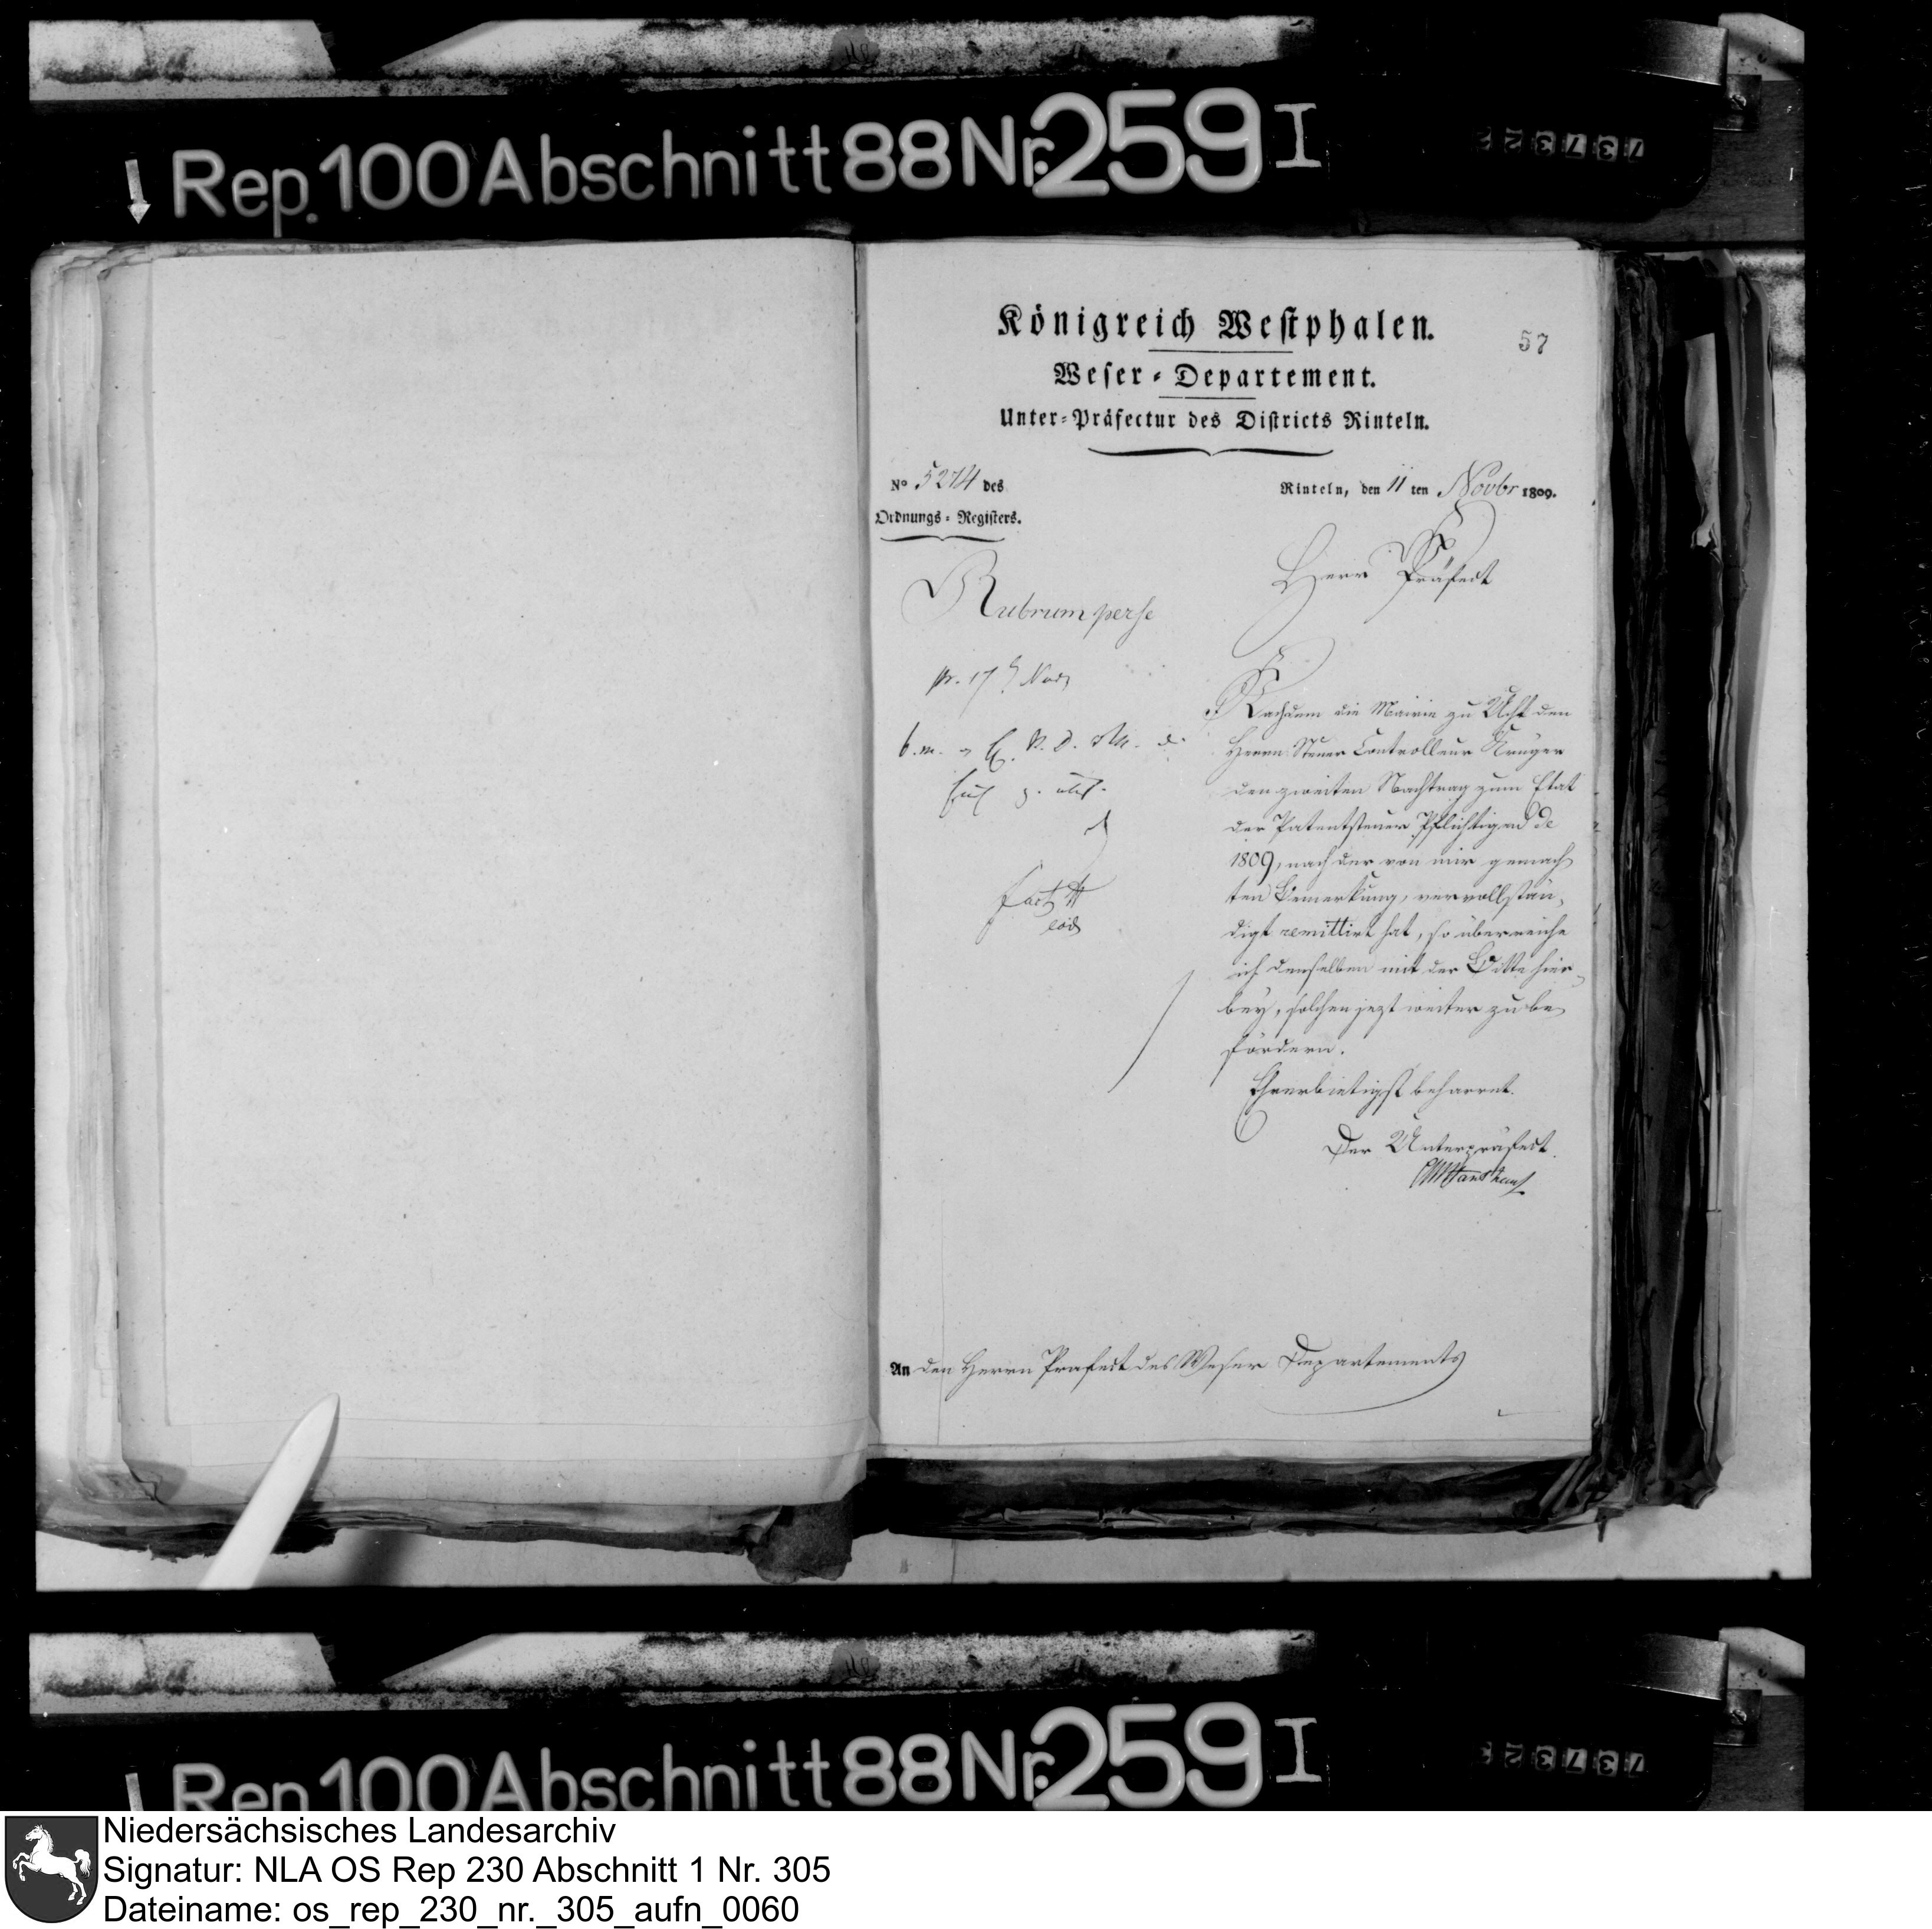 Rep. 100 Abschnitt 88 Nr. 259 I
Königreich Westphalen.
57
Weser-Departement.
Unter-Präfectur des Districts Rinteln.
No 5274 des
Ordnungs-Registers.
Rinteln, den 11 ten Novbr 1809.
Herr Präfect
Rubrum perse
pr. 17
Nachdem die Mairie zu Ucht den
Herrn Steuer Controlleur Krüger
den zweiten Nachtrag zum Etat
der Patentsteuer Pflichtigen de
1809, nach der von mir gemach
ten Bemerkung, vervollstän,
digt remittirt hat, so überreiche
ich denselben mit der Bitte hier
bey, solchen jezt weiter zu be
fördern.
Ehrerbietigst beharret.
Der Unterpräfect
An den Herrn Präfect des Weser Departements
Rep. 100 Abschnitt 88 Nr. 259 I
Niedersächsisches Landesarchiv
Signatur: NLA OS Rep 230 Abschnitt 1 Nr. 305
Dateiname: os_rep_230_nr._305_aufn_0060